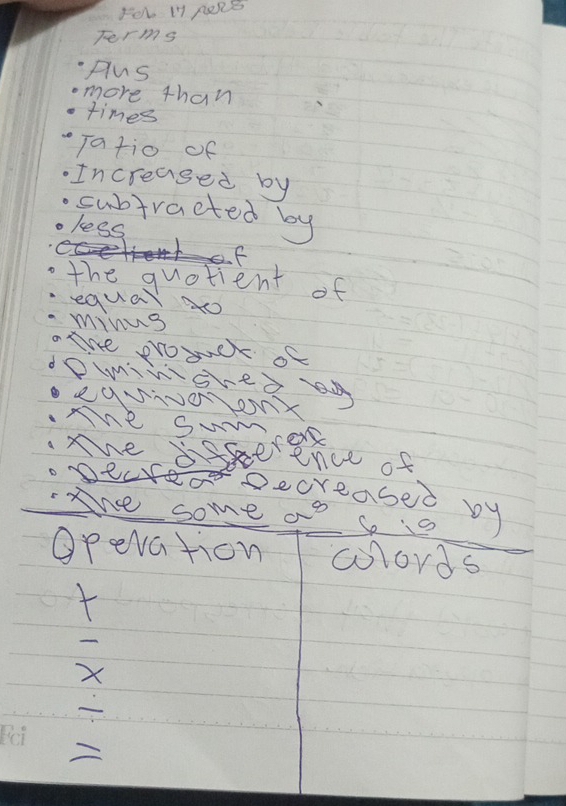 Feb 17
Terms
• Plus
• more than
• times
• Tatio of
• Increased by
• subtracted by
• less
• the quotient of
• equal to
• minus
• The product of
• Diminished by
• equivalent
• The sum
• The difference of
• Decreased by
• The some as & is
Operation words
+
-
×
÷
=
Fci